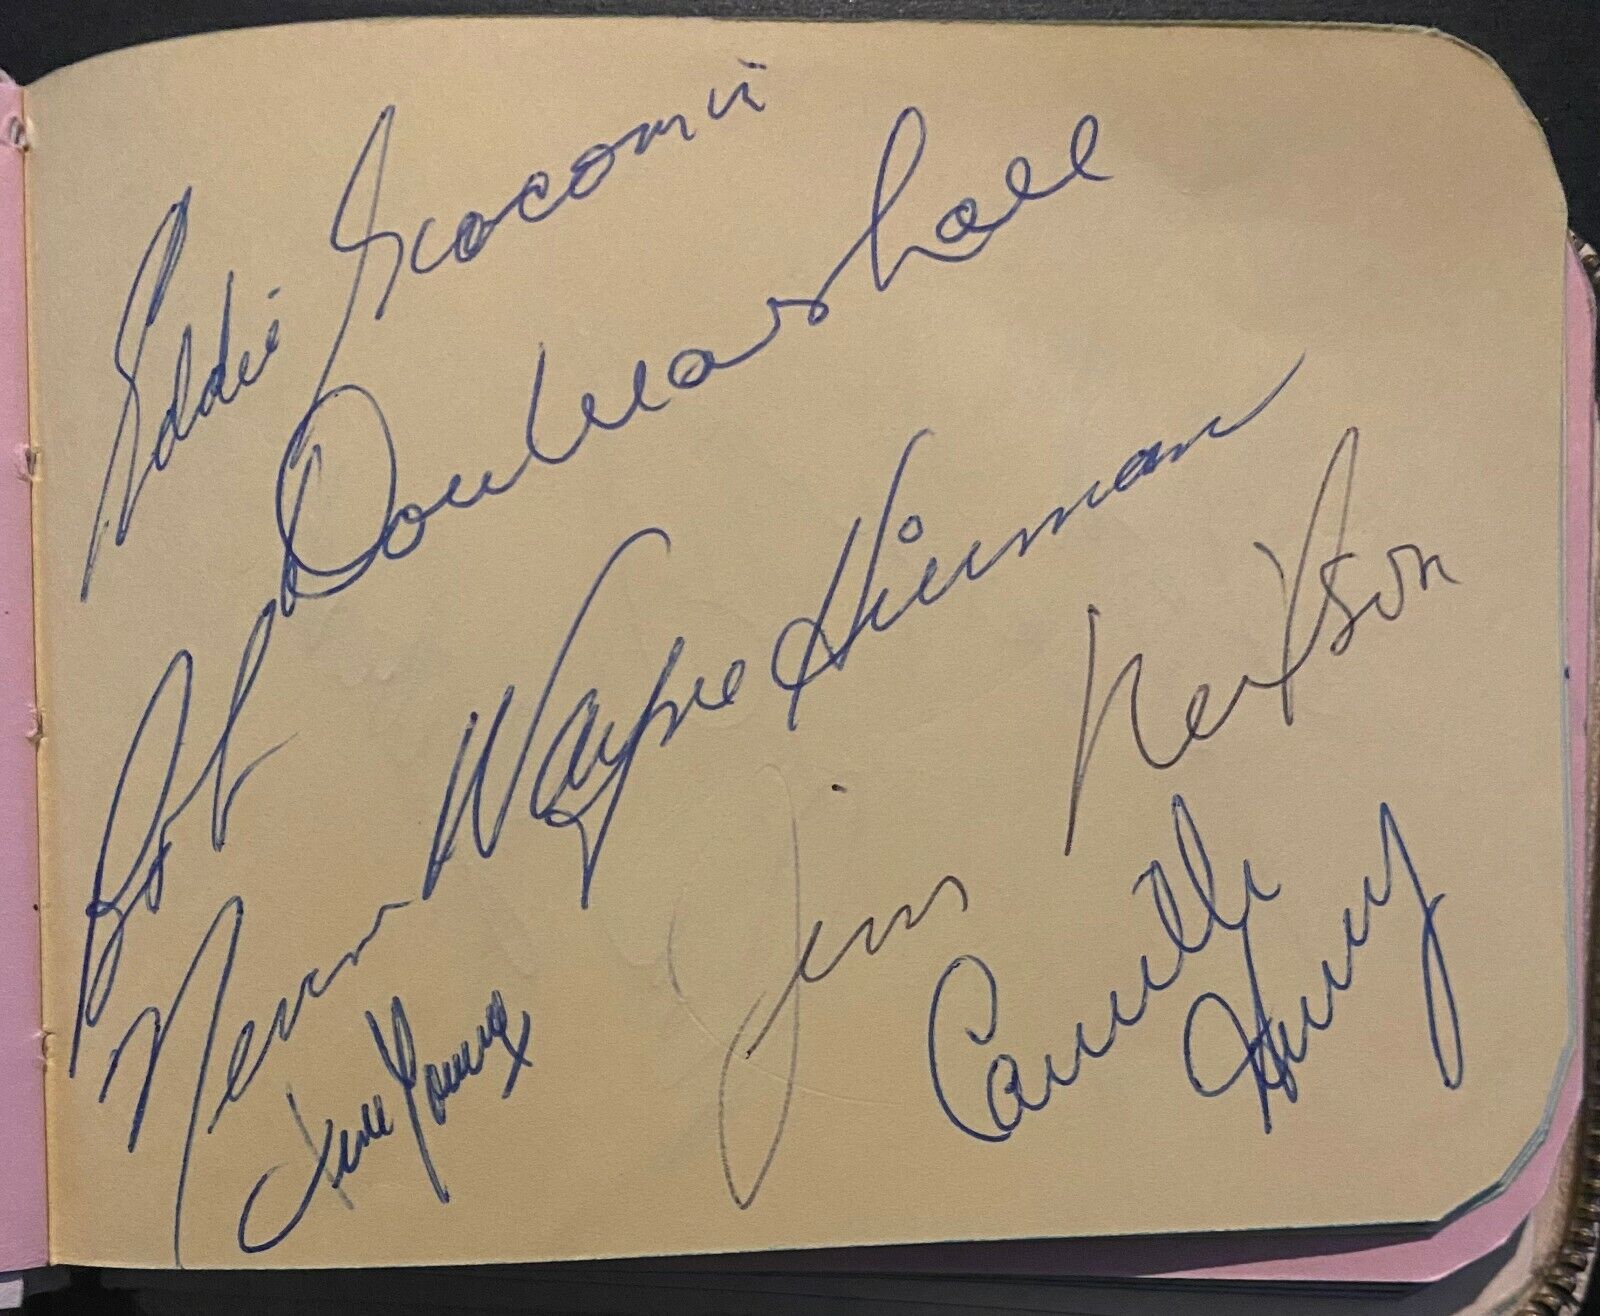 Eddie Giacomin
Don Marshall
Bob Nevin
Wayne Hillman
Jim Neilson
Camille Henry